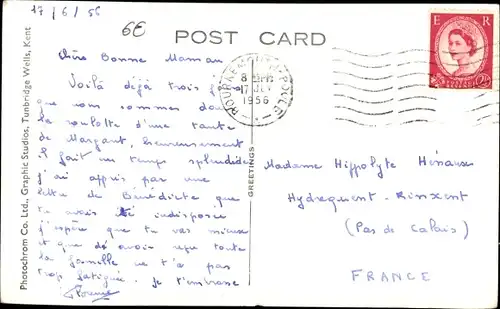 17/6/56
6E
POST CARD
Chère Bonne Maman
Voilà déjà trois jours
que nous sommes dans
la roulotte d'une tante
de Margaret, heureusement
il fait un temps splendide
j'ai appris par une
lettre de Bénédicte que
tu avais été indisposée
j'espère que tu vas mieux
et que de avoir reçu toute
la famille ne t'a pas
trop fatiguée. Je t'embrasse
Photochrom Co. Ltd., Graphic Studios, Tunbridge Wells, Kent
GREETINGS
BOURNEMOUTH POOLE
8
17
1956
E R
Madame Hippolyte Hénaux
Hydrequent-Rinxent
(Pas de Calais)
FRANCE